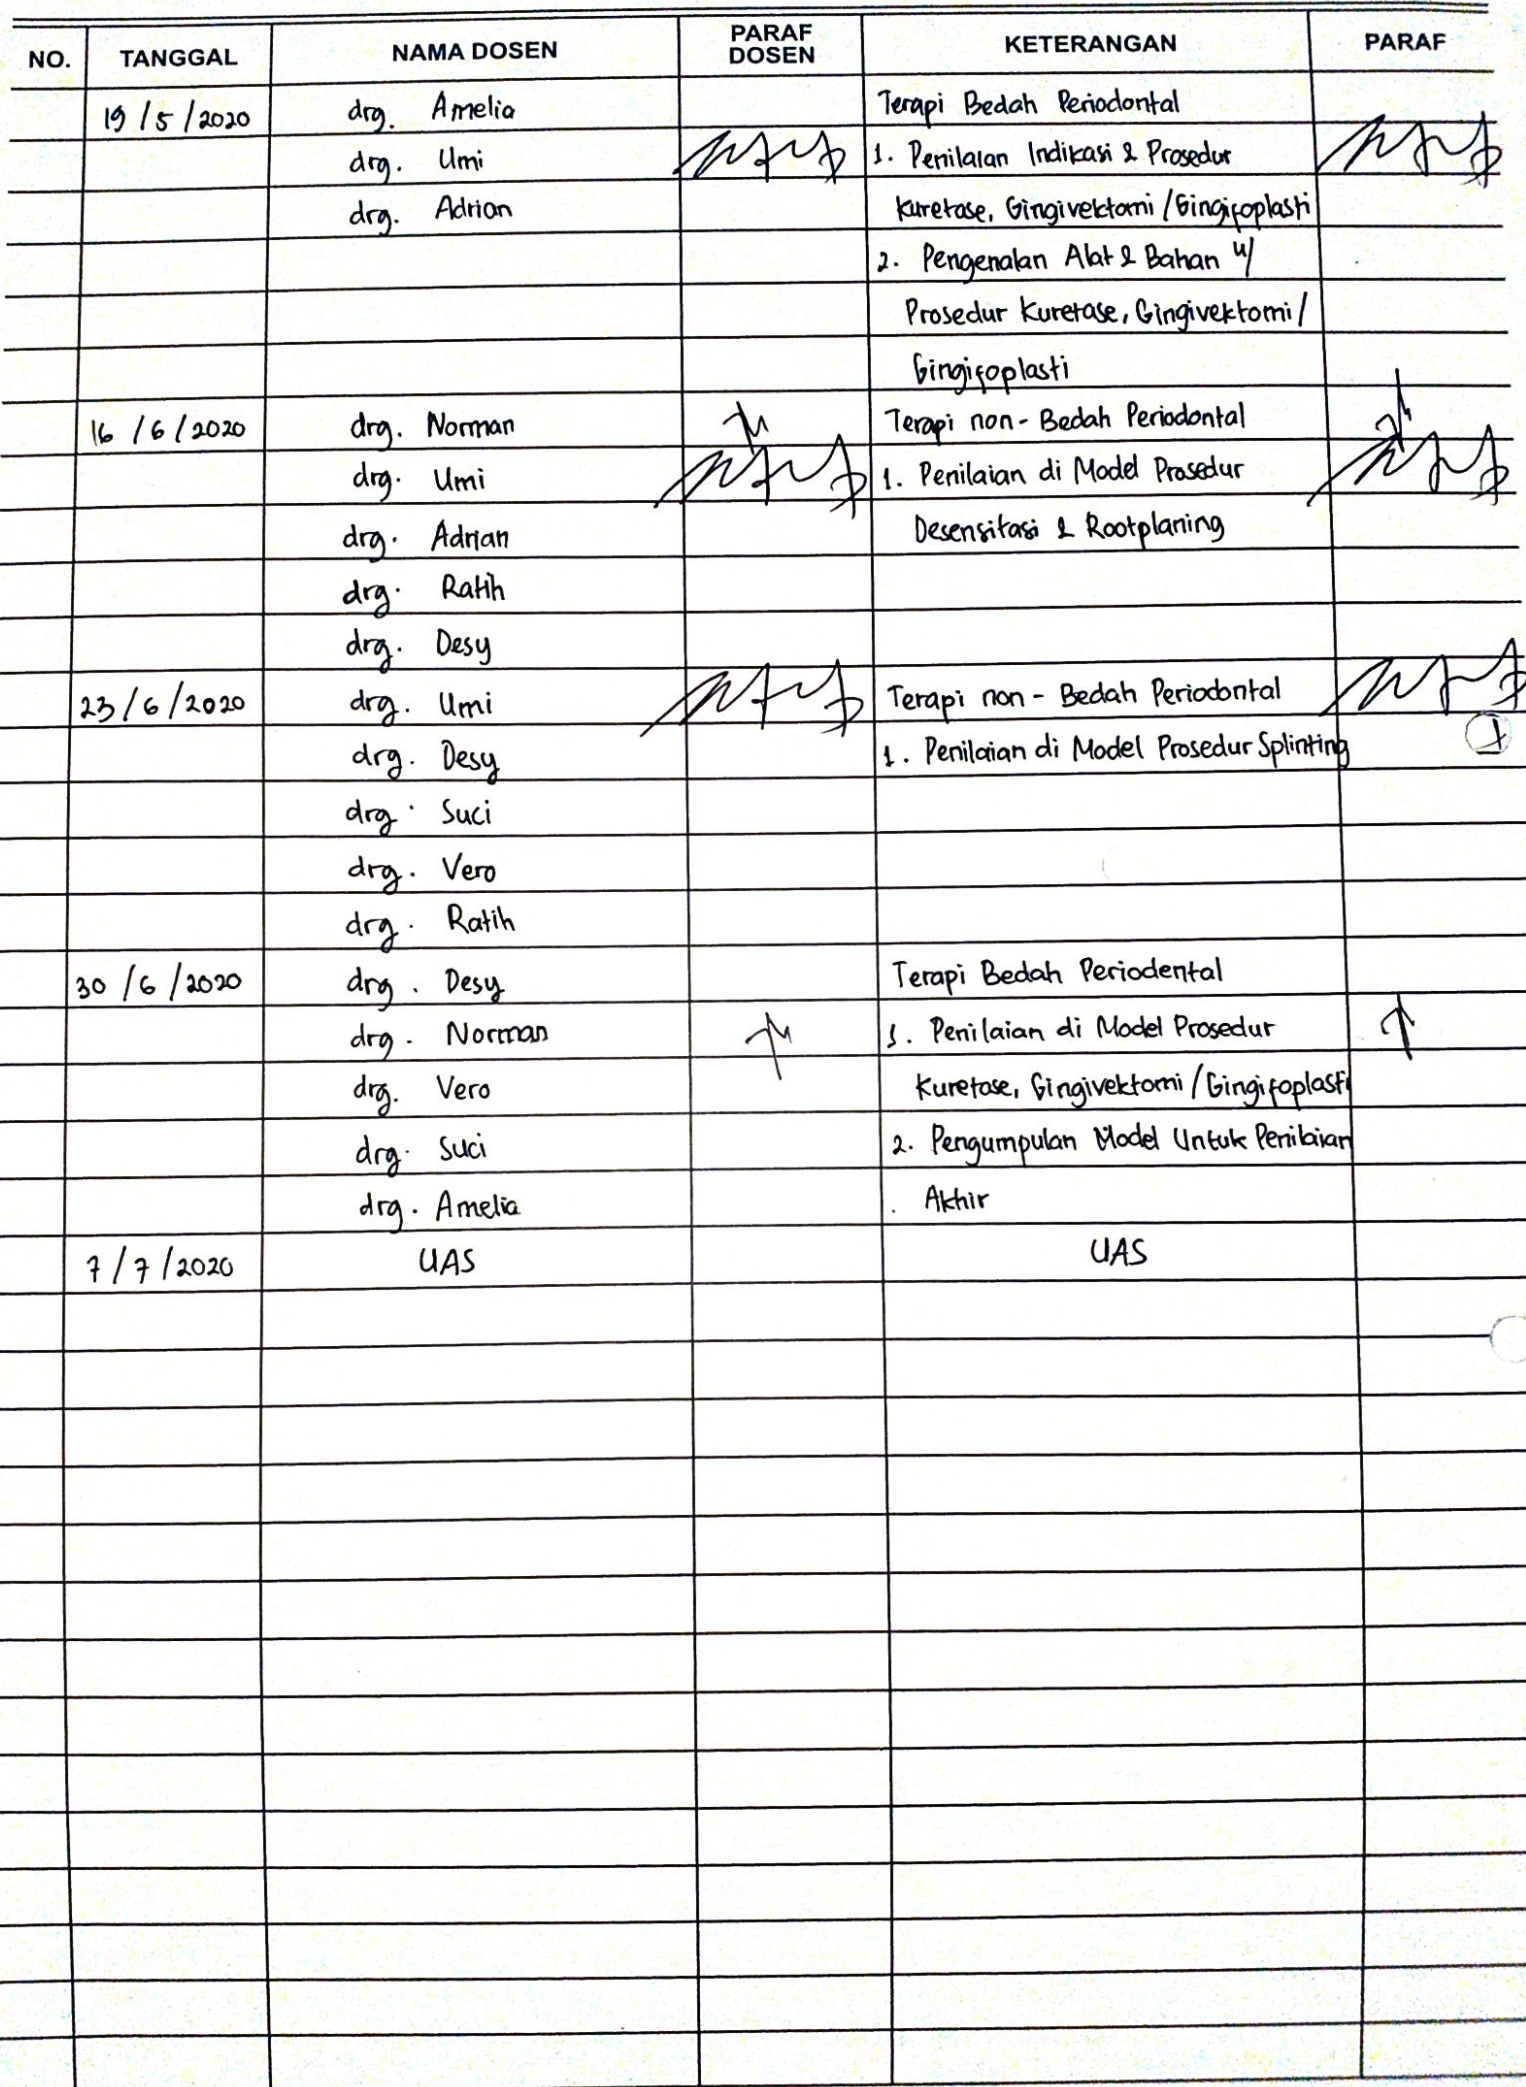 NO. TANGGAL NAMA DOSEN PARAF DOSEN KETERANGAN PARAF
19/5/2020 drg. Amelia Terapi Bedah Periodontal
drg. Umi 1. Penilaian Indikasi & Prosedur
drg. Adrian Kuretase, Gingivektomi/Gingifoplasti
2. Pengenalan Alat & Bahan u/
Prosedur Kuretase, Gingivektomi/
Gingifoplasti
16/6/2020 drg. Norman Terapi non-Bedah Periodontal
drg. Umi 1. Penilaian di Model Prosedur
drg. Adrian Desensitasi & Rootplaning
drg. Ratih
drg. Desy
23/6/2020 drg. Umi Terapi non-Bedah Periodontal
drg. Desy 1. Penilaian di Model Prosedur Splinting
drg. Suci
drg. Vero
drg. Ratih
30/6/2020 drg. Desy Terapi Bedah Periodental
drg. Norman 1. Penilaian di Model Prosedur
drg. Vero Kuretase, Gingivektomi/Gingifoplasti
drg. Suci 2. Pengumpulan Model Untuk Penilaian
drg. Amelia Akhir
7/7/2020 UAS UAS